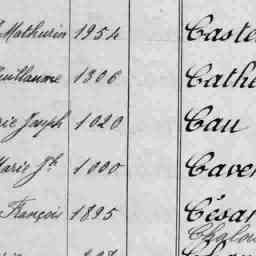 Mathurin 1954 Caste
Guillaume 1306 Cathe
rie Joseph 1020 Cau
Marie Jh 1000 Caver
François 1895 Césa